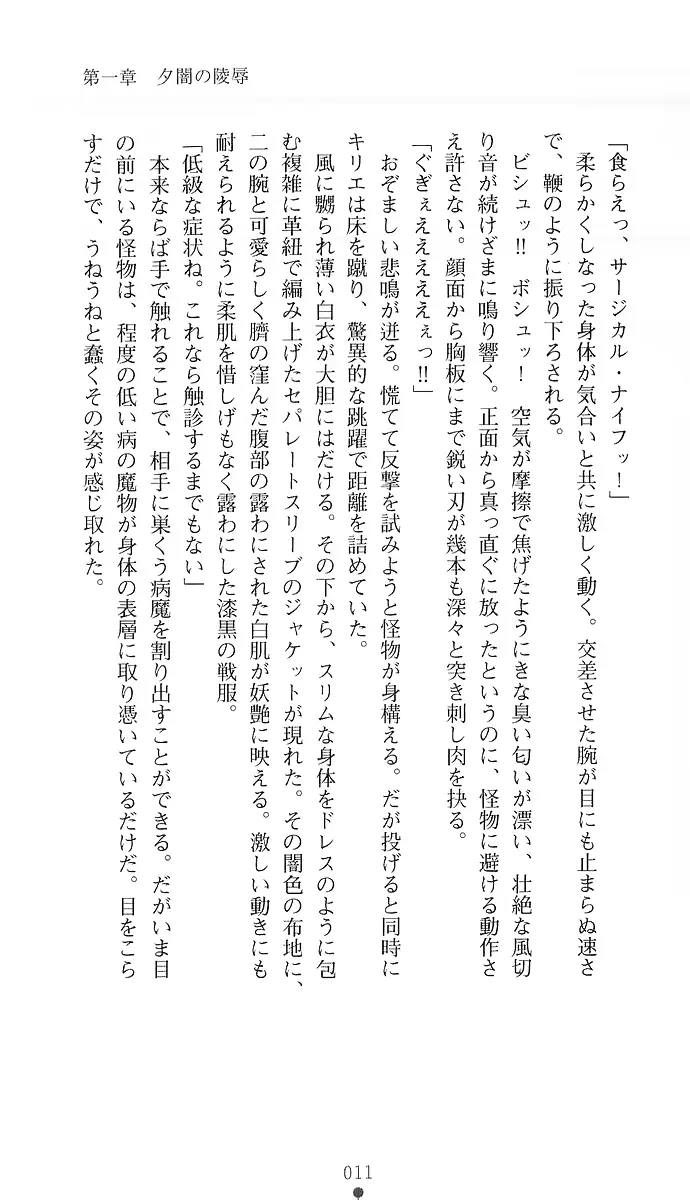 第一章　夕闇の陵辱
「食らえっ、サージカル・ナイフッ！」
　柔らかくしなった身体が気合いと共に激しく動く。交差させた腕が目にも止まらぬ速さ
で、鞭のように振り下ろされる。
　ビシュッ!!　ボシュッ！　空気が摩擦で焦げたようにきな臭い匂いが漂い、壮絶な風切
り音が続けざまに鳴り響く。正面から真っ直ぐに放ったというのに、怪物に避ける動作さ
え許さない。顔面から胸板にまで鋭い刃が幾本も深々と突き刺し肉を抉る。
「ぐぎぇええええぇっ!!」
　おぞましい悲鳴が迸る。慌てて反撃を試みようと怪物が身構える。だが投げると同時に
キリエは床を蹴り、驚異的な跳躍で距離を詰めていた。
　風に嬲られ薄い白衣が大胆にはだける。その下から、スリムな身体をドレスのように包
む複雑に革紐で編み上げたセパレートスリーブのジャケットが現れた。その闇色の布地に、
二の腕と可愛らしく臍の窪んだ腹部の露わにされた白肌が妖艶に映える。激しい動きにも
耐えられるように柔肌を惜しげもなく露わにした漆黒の戦服。
「低級な症状ね。これなら触診するまでもない」
　本来ならば手で触れることで、相手に巣くう病魔を割り出すことができる。だがいま目
の前にいる怪物は、程度の低い病の魔物が身体の表層に取り憑いているだけだ。目をこら
すだけで、うねうねと蠢くその姿が感じ取れた。
011